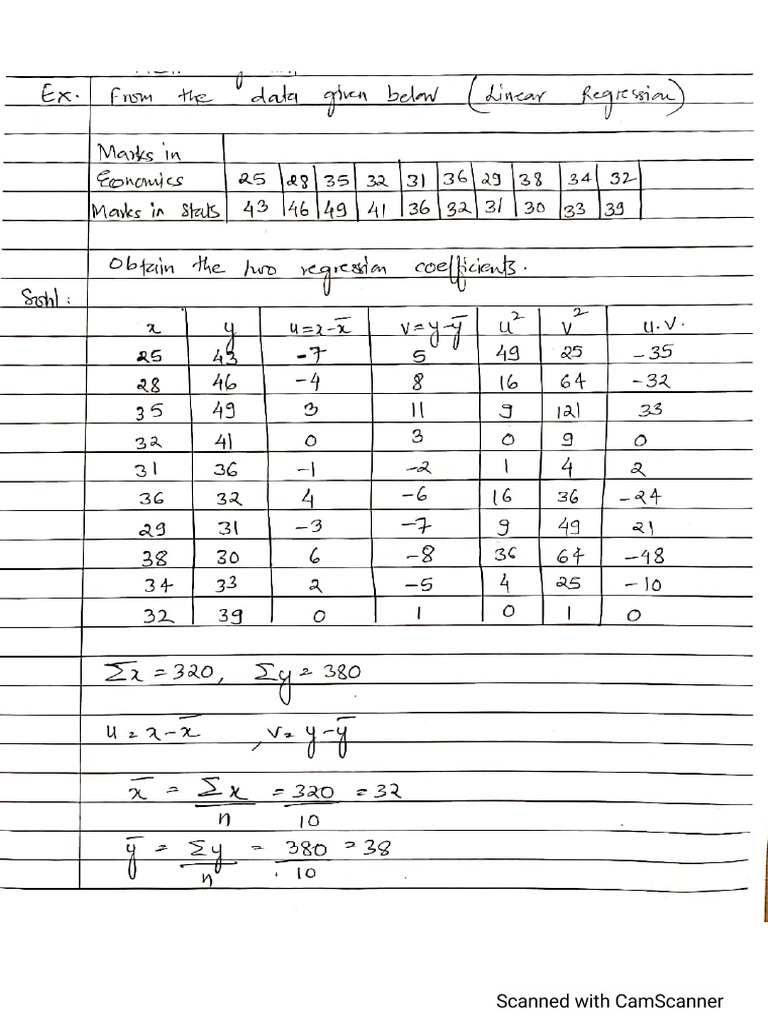 Ex. From the data given below (Linear Regression)
Marks in
Economics 25 28 35 32 31 36 29 38 34 32
Marks in Stats 43 46 49 41 36 32 31 30 33 39
Obtain the two regression coefficients.
Soln:
x y u=x-x̅ v=y-y̅ u² v² u.v.
25 43 -7 5 49 25 -35
28 46 -4 8 16 64 -32
35 49 3 11 9 121 33
32 41 0 3 0 9 0
31 36 -1 -2 1 4 2
36 32 4 -6 16 36 -24
29 31 -3 -7 9 49 21
38 30 6 -8 36 64 -48
34 33 2 -5 4 25 -10
32 39 0 1 0 1 0
Σx = 320, Σy = 380
u = x-x̅ , v = y-y̅
x̅ = Σx/n = 320/10 = 32
y̅ = Σy/n = 380/10 = 38
Scanned with CamScanner